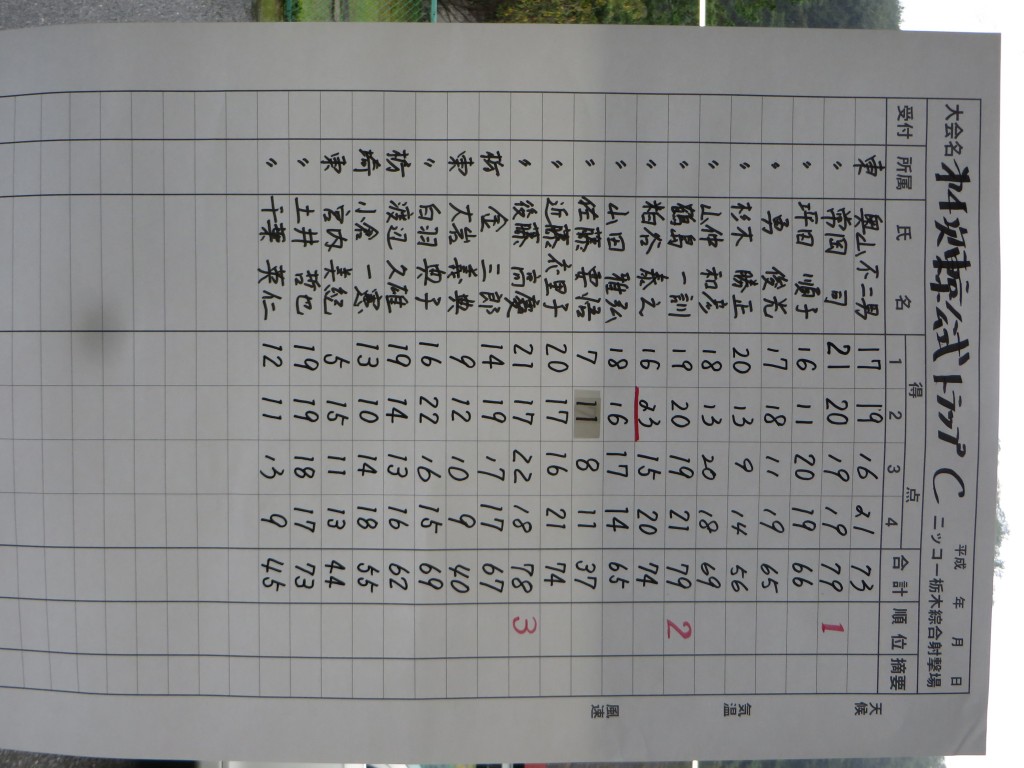 大会名 オ4次東公式トラップ C 平成 年 月 日
ニッコー栃木綜合射撃場
受付 所属 氏名 得点 1 2 3 4 合計 順位 摘要
東 奥山不二男 17 19 16 21 73
〃 常国 司 21 20 19 19 79 1
〃 坪田 順子 16 11 20 19 66
〃 勇 俊光 17 18 11 19 65
〃 杉木 勝正 20 13 9 14 56
〃 山仲 和彦 18 13 20 18 69
〃 鶴島 一訓 19 20 19 21 79 2
〃 粕谷 泰之 16 23 15 20 74
〃 山田 雅弘 18 16 17 14 65
〃 佐藤 要悟 7 11 8 11 37
〃 近藤 衣里子 20 17 16 21 74
〃 後藤 高慶 21 17 22 18 78 3
栃 金 三郎 14 19 17 17 67
東 大岩 義典 9 12 10 9 40
〃 白羽 典子 16 22 16 15 69
栃 渡辺 久雄 19 14 13 16 62
埼 小倉 一憲 13 10 14 18 55
東 宮内 美紀 5 15 11 13 44
〃 土井 哲也 19 19 18 17 73
〃 千葉 英仁 12 11 13 9 45
天候
気温
風速